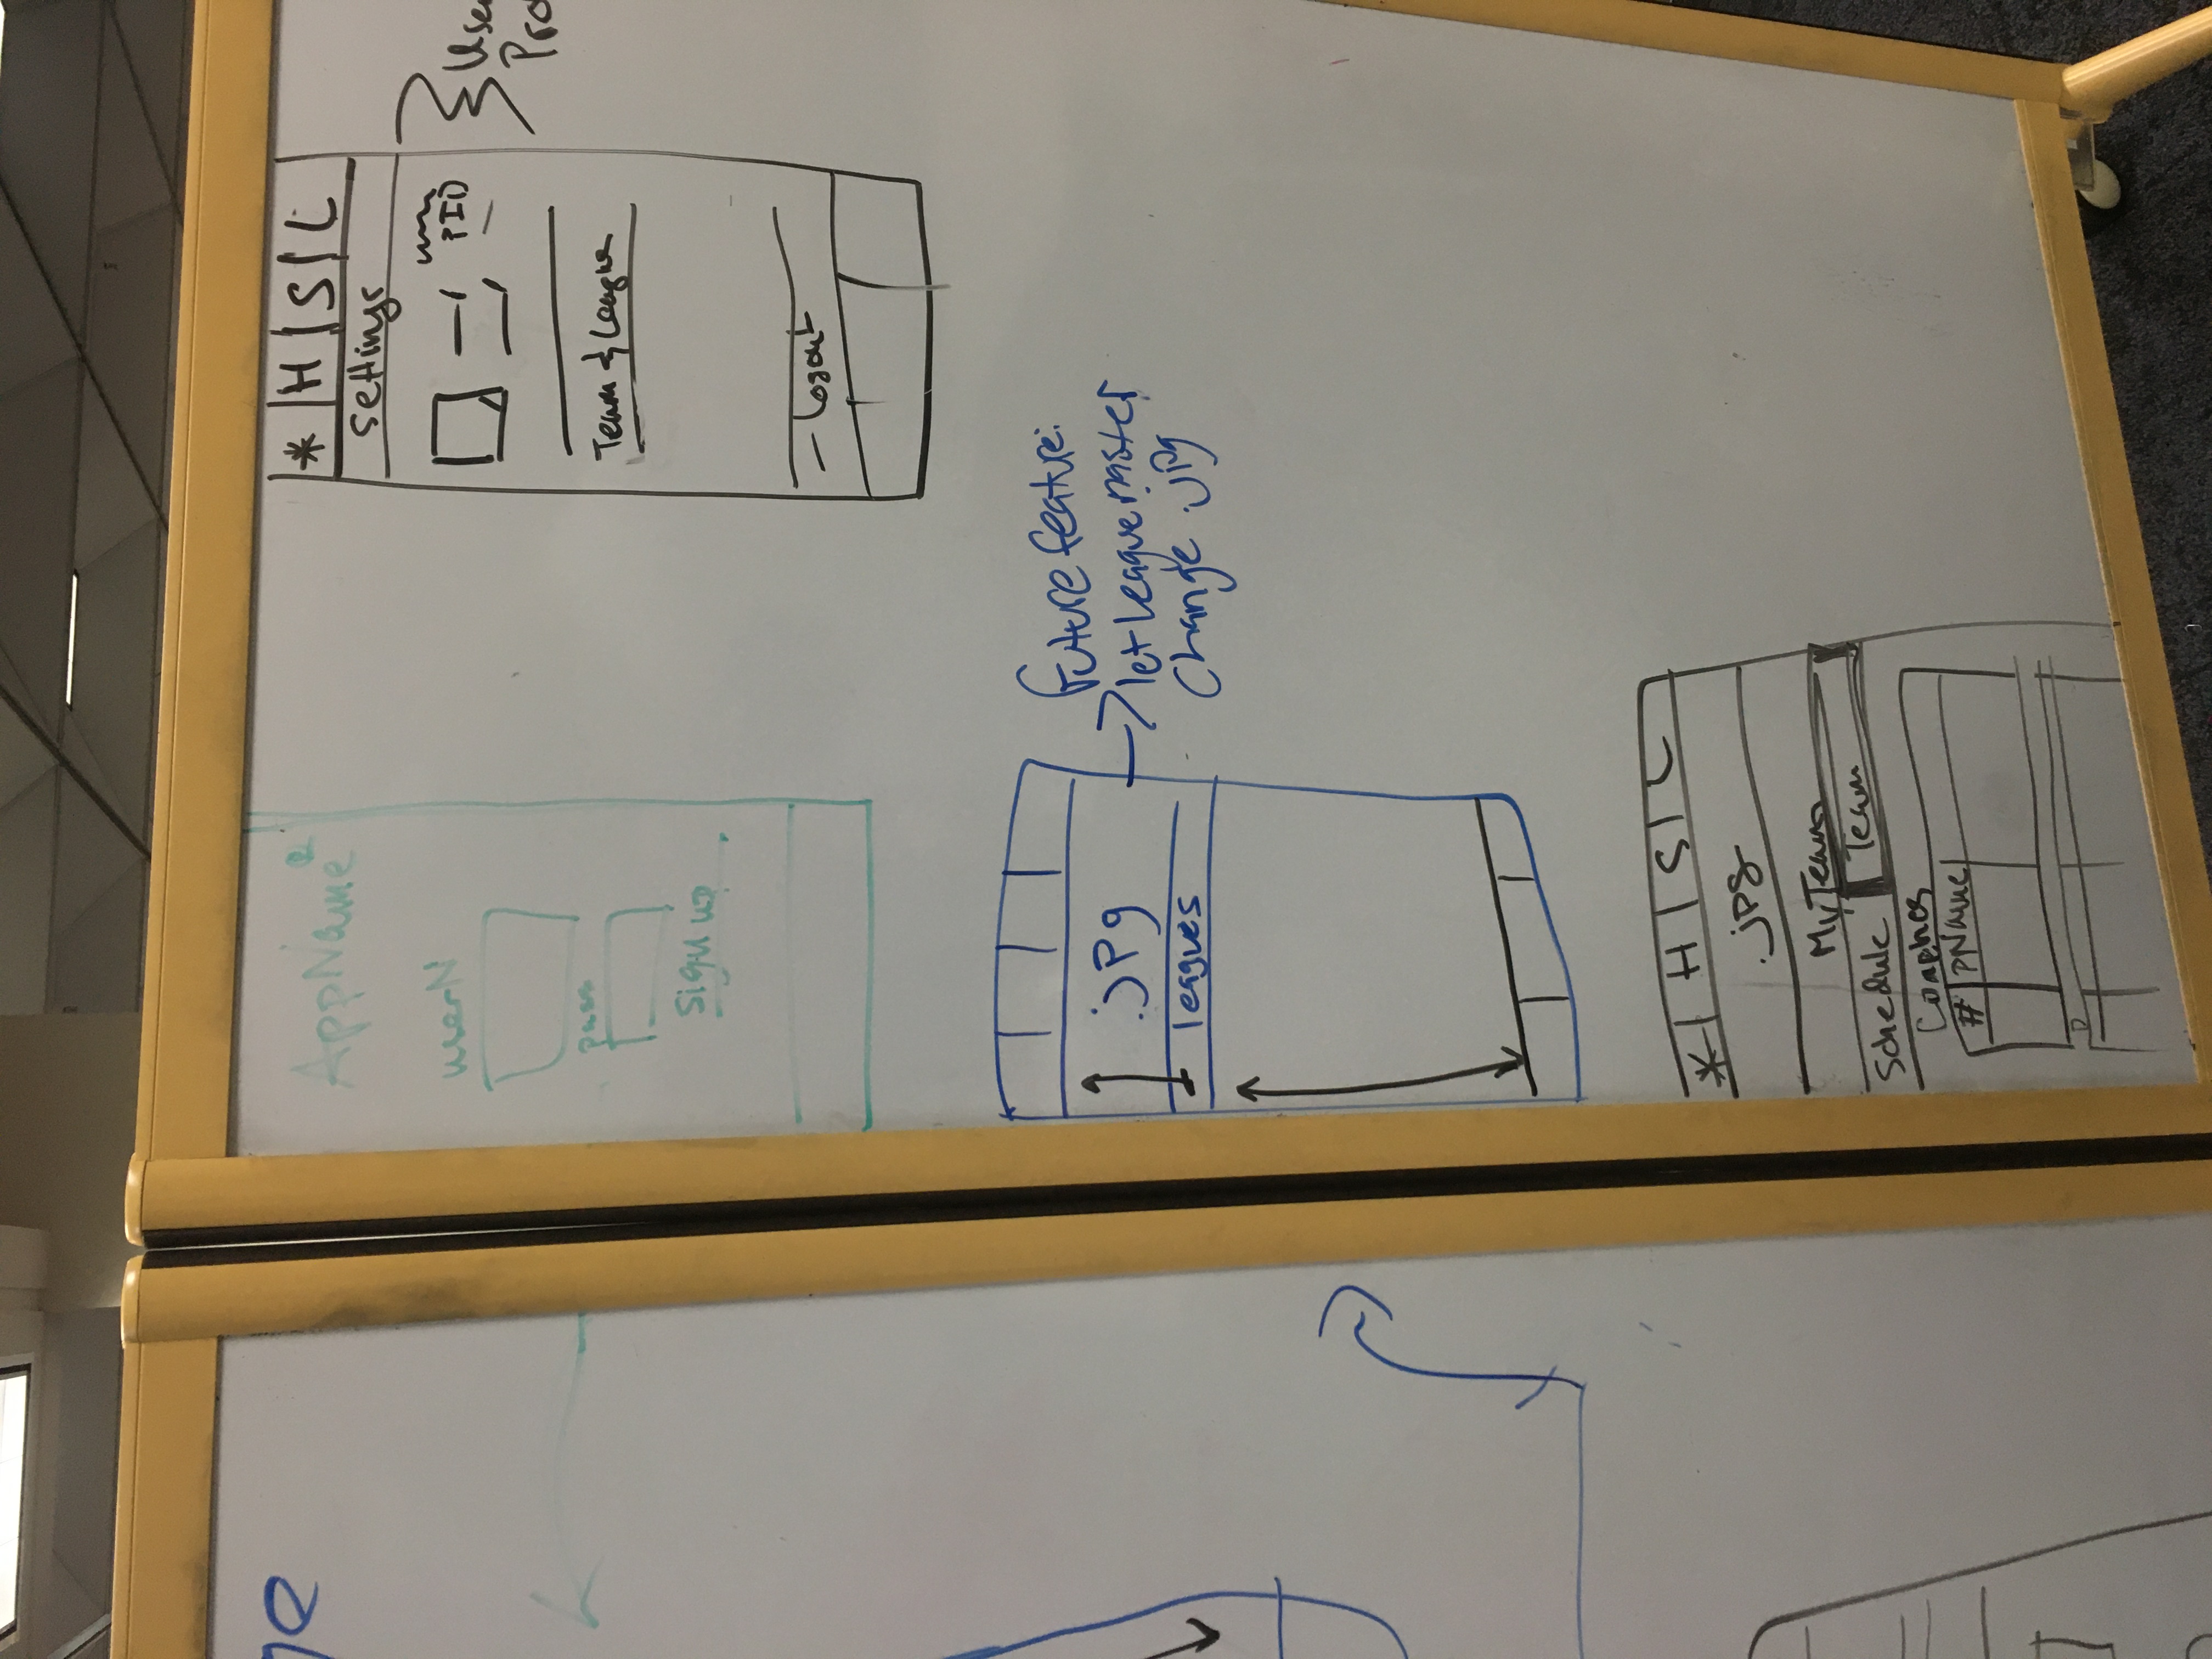 ge
AppName
userN
pass
Sign up
* | H | S | L
Settings
PID
Team & League
- Logout
Use
Pro
.jpg
leagues
Future feature:
let League master
change .jpg
* | H | S | L
.jpg
My Team
Schedule
Team
Coaches
# | PName